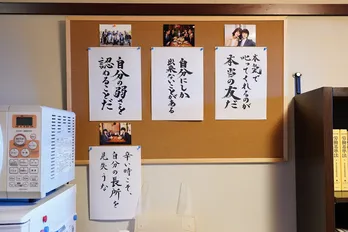 本気で
叱ってくれるのが
本当の友だ
自分にしか
出来ないことがある
自分の弱さを
認めることだ
辛い時こそ、
自分の長所を
見失うな